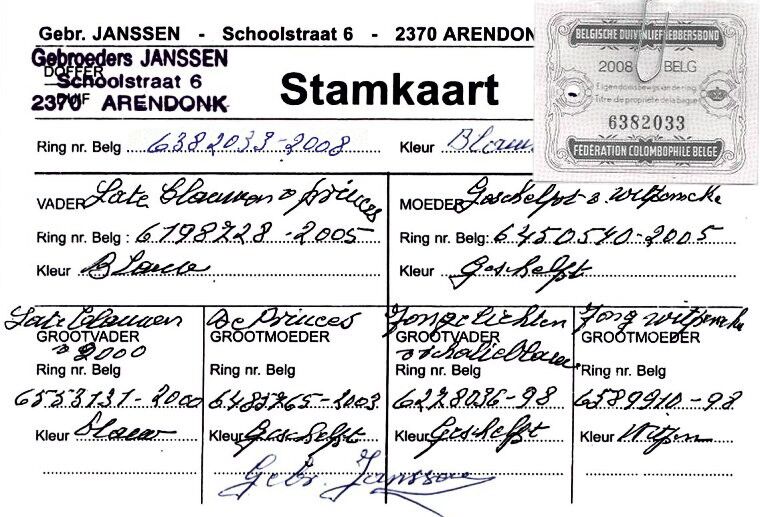 Gebr. JANSSEN - Schoolstraat 6 - 2370 ARENDON
Gebroeders JANSSEN
Schoolstraat 6
2370 ARENDONK
DOFFER
DUIF
Stamkaart
BELGISCHE DUIVENLIEFHEBBERSBOND
2008 BELG
Eigendomsbewijs van de ring
Titre de propriété de la bague
6382033
FÉDÉRATION COLOMBOPHILE BELGE
Ring nr. Belg 6382033-2008 Kleur Blauw
VADER Late Blauwen princes
Ring nr. Belg : 6198728-2005
Kleur Blauw
MOEDER Geschelpt Witpencke
Ring nr. Belg: 6450540-2005
Kleur Geschelpt
Late Blauwen
GROOTVADER
2000
Ring nr. Belg
6553131-2000
Kleur Blauw
De Princes
GROOTMOEDER
Ring nr. Belg
6485765-2003
Kleur Geschelpt
Jonge Lichten
GROOTVADER
Ring nr. Belg
6278036-98
Kleur Geschelpt
Jong Witpencke
GROOTMOEDER
Ring nr. Belg
6589910-98
Kleur Witpen
Gebr. Janssen